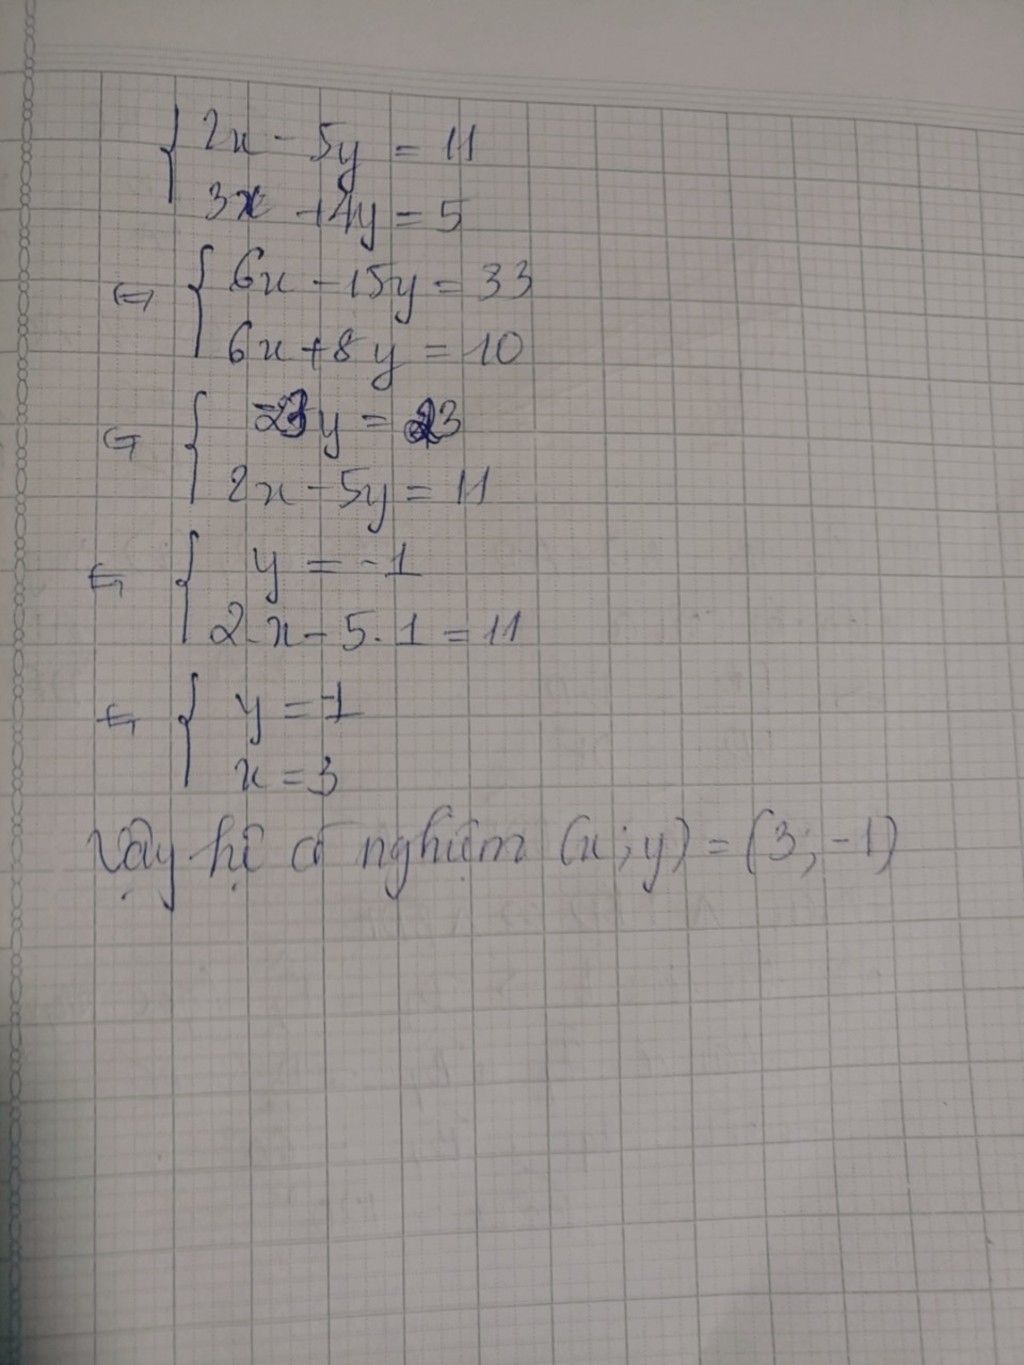 2x - 5y = 11
3x + 4y = 5
⇔ 6x - 15y = 33
6x + 8y = 10
⇔ -23y = 23
2x - 5y = 11
⇔ y = -1
2.x - 5.1 = 11
⇔ y = -1
x = 3
Vậy hệ có nghiệm (x; y) = (3; -1)